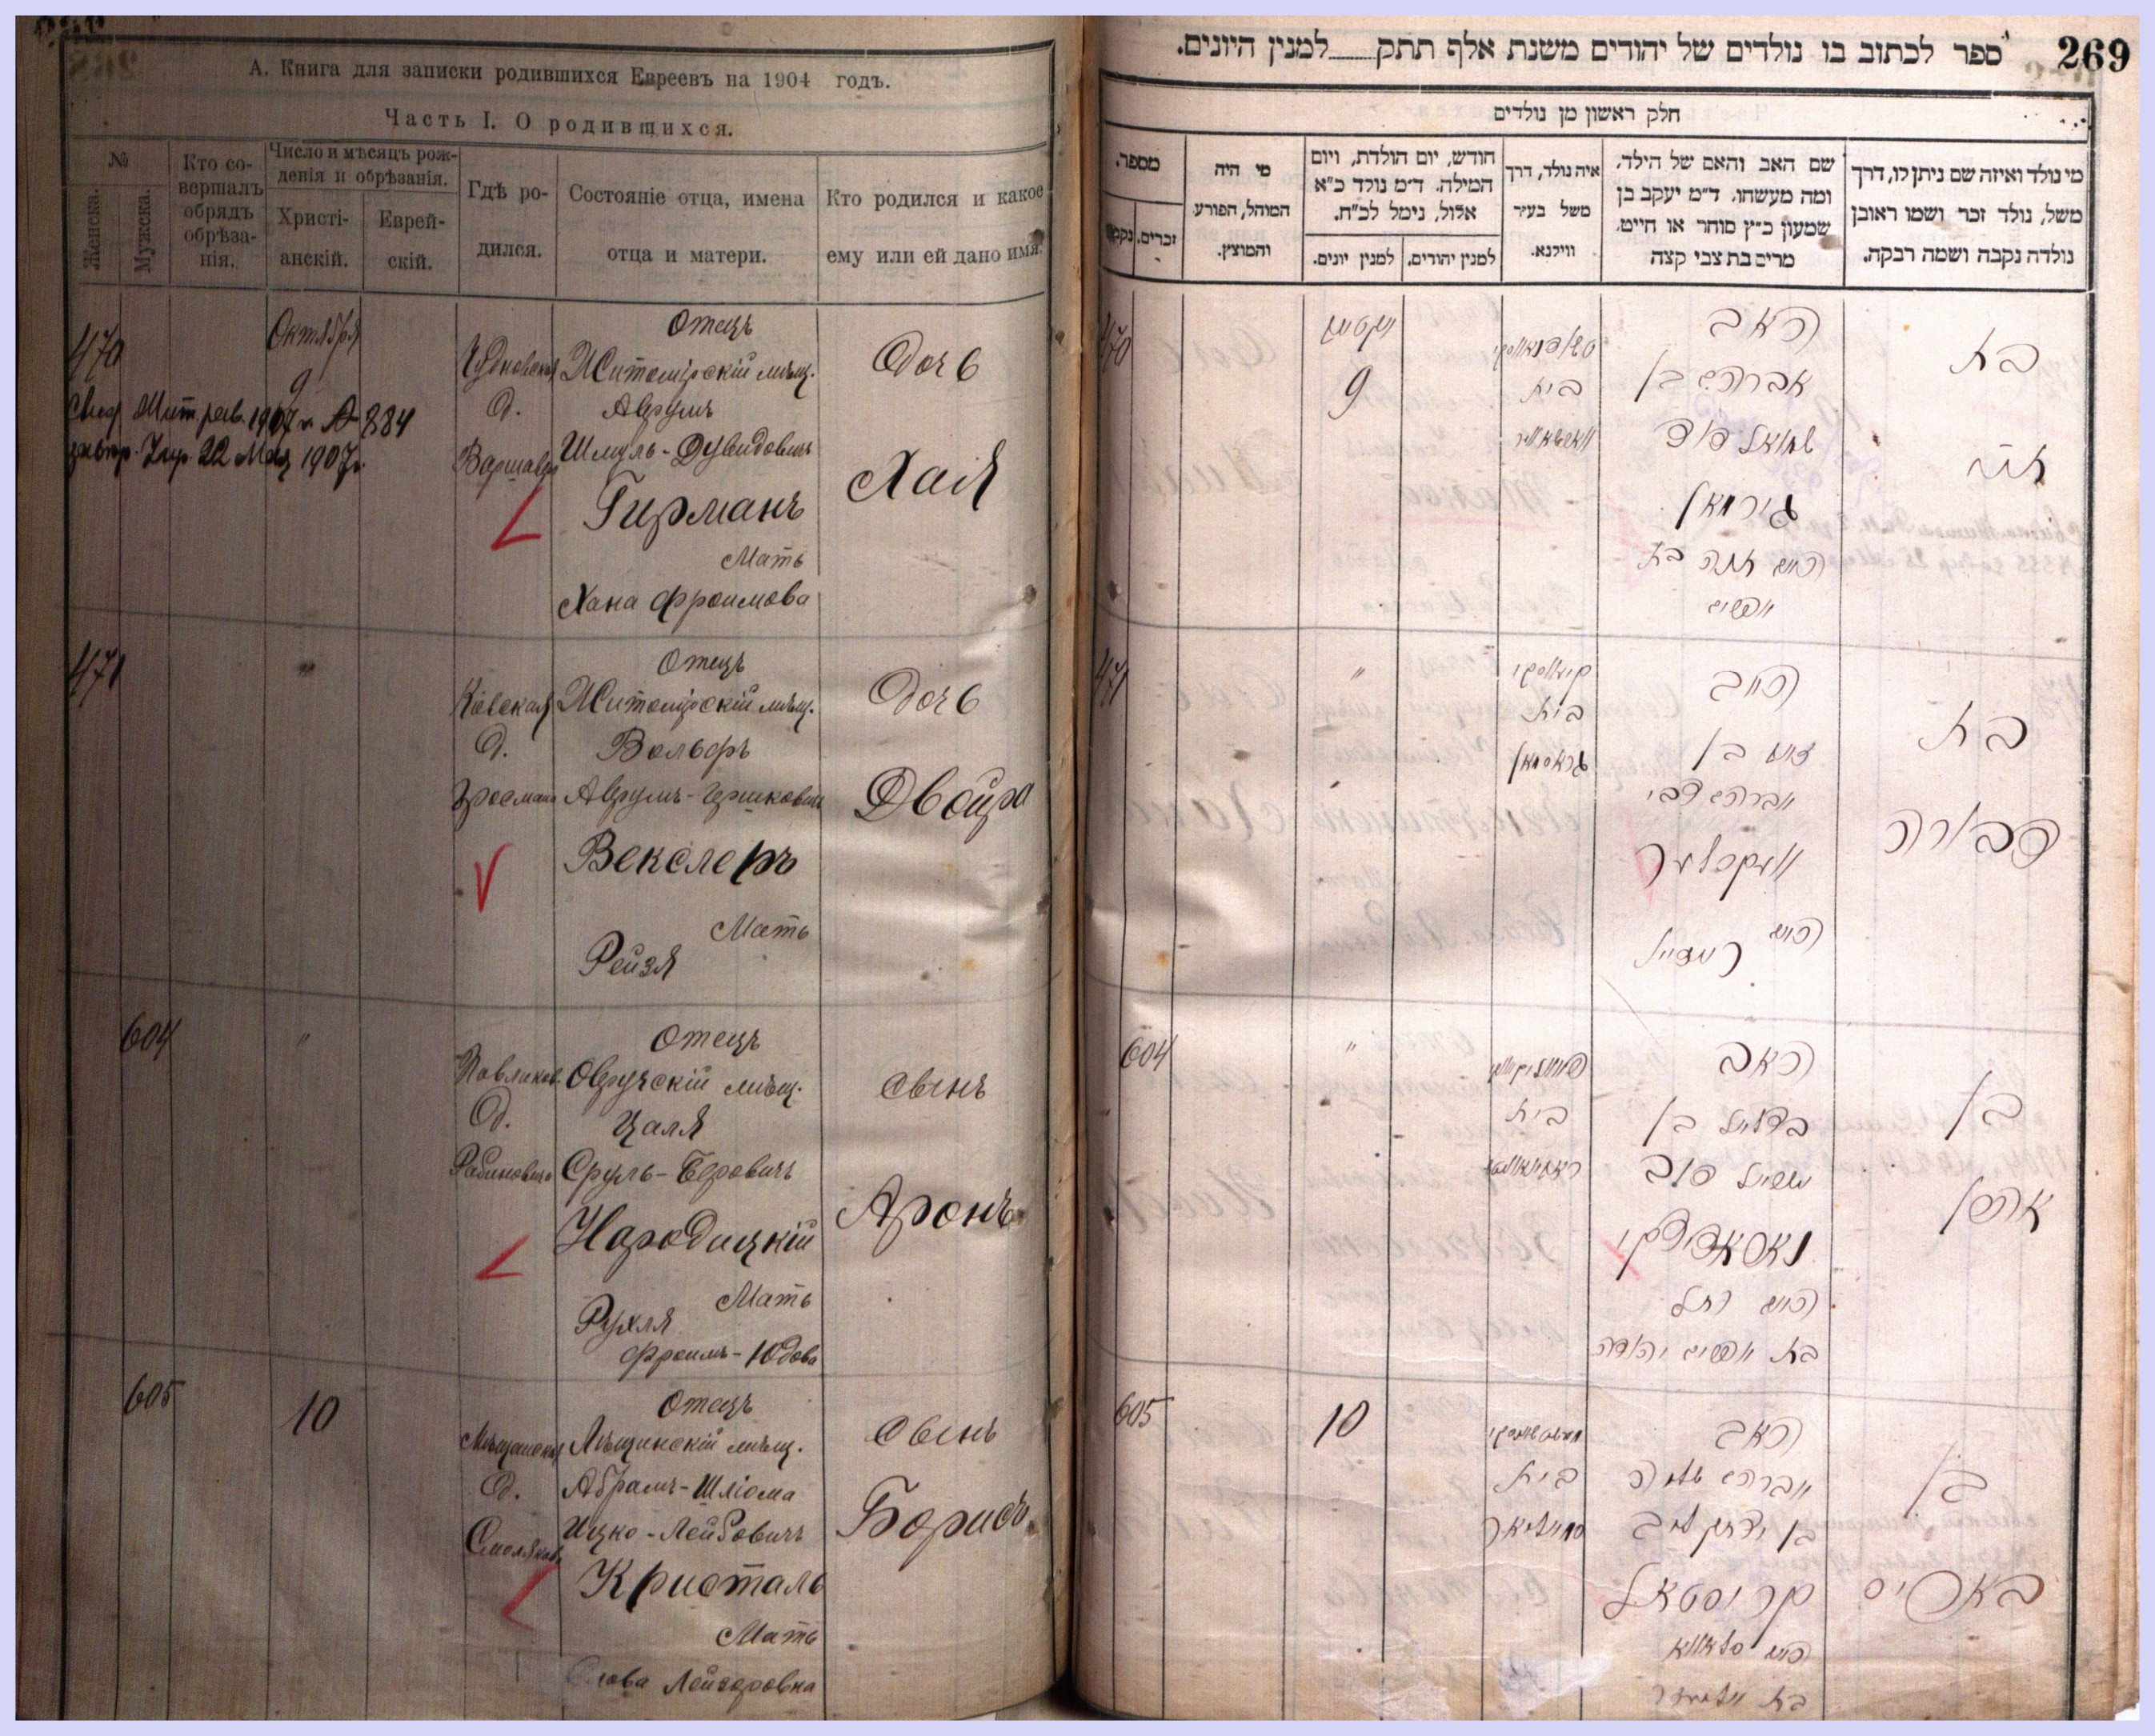 А. Книга для записки родившихся Евреевъ на 1904 годъ.
Часть I. О родившихся.
№
Женска.
Мужска.
Кто со-
вершалъ
обрядъ
обрѣза-
нія.
Число и мѣсяцъ рож-
денія и обрѣзанія.
Христі-
анскій.
Еврей-
скій.
Гдѣ ро-
дился.
Состояніе отца, имена
отца и матери.
Кто родился и какое
ему или ей дано имя.
470
Октября
9
1907 г. № 884
22 Мая 1907 г.
Чудновская
д.
Отецъ
Житомірскій мѣщ.
Аврумъ
Шмуль-Дувидовичъ
Гирманъ
Мать
Хана Фроимова
Дочь
Хая
471
"
Кіевская
д.
Отецъ
Житомірскій мѣщ.
Вольфъ
Аврумъ-Гершковичъ
Векслеръ
Мать
Рейзя
Дочь
Двойра
604
"
Павликов.
д.
Рабиновича
Отецъ
Овручскій мѣщ.
Цаля
Сруль-Беровичъ
Народицкій
Мать
Рухля
Фроимъ-Юдова
Сынъ
Аронъ
605
10
д.
Отецъ
мѣщ.
Абрамъ-Шліома
Ицко-Лейбовичъ
Кристаль
Мать
Лейзоровна
Сынъ
Борисъ
269
ספר לכתוב בו נולדים של יהודים משנת אלף תתק למנין היונים.
חלק ראשון מן נולדים
מי נולד ואיזה שם ניתן לו, דרך
משל, נולד זכר ושמו ראובן
נולדה נקבה ושמה רבקה.
שם האב והאם של הילד,
ומה מעשהו. ד״מ יעקב בן
שמעון כ״ץ סוחר או חייט,
מרים בת צבי קצה
איה נולד, דרך
משל בעיר
ווילנא.
חודש, יום הולדת, ויום
המילה. ד״מ נולד כ״א
אלול, נימל לכ״ח.
למנין יהודים.
למנין יונים.
מי היה
המוהל, הפורע
והמוצץ.
מספר.
זכרים.
470
9
בית
האב
אברהם בן
שמואל דוד
גירמאן
האם חנה בת
בת
חי׳
471
"
בית
גראסמאן
בן
וועקסלער
בת
דבורה
604
"
בית
האב
בצלאל בן
נאראדיצקי
האם רחל
בן
אהרן
605
10
בית
האב
אברהם שלמה
בן יצחק לייב
קריסטאל
האם
בן
באריס